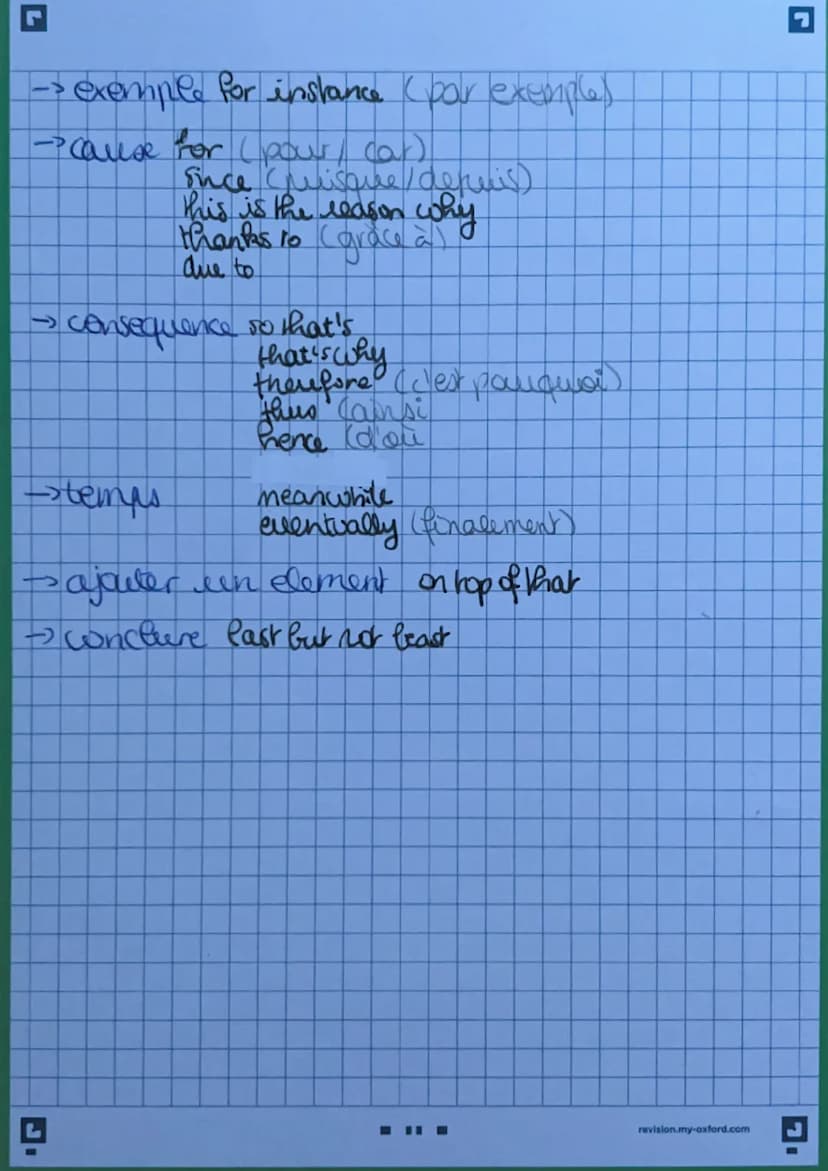 -> exemple for instance (par exemple)
-> cause for (pour/ car)
since (puisque/depuis)
this is the reason why
thanks to (grâce à)
due to
-> consequence so that's
that's why
therefore (c'est pourquoi)
thus (ainsi
hence (d'où
-> temps meanwhile
eventually (finalement)
-> ajouter un element on top of that
-> conclure last but not least
revision.my-oxford.com